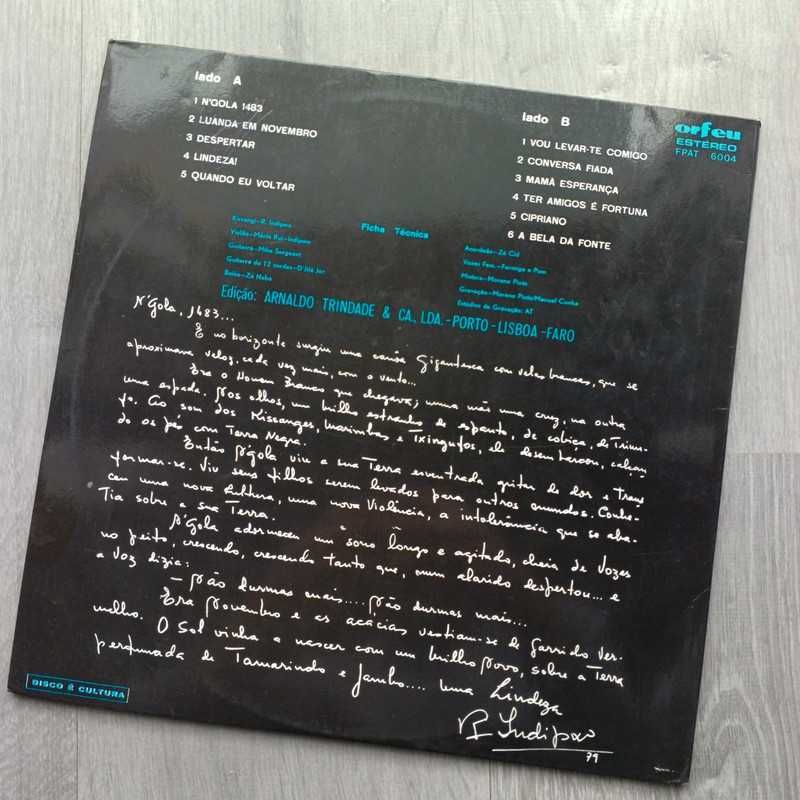 lado A
1 N'GOLA 1483
2 LUANDA EM NOVEMBRO
3 DESPERTAR
4 LINDEZA!
5 QUANDO EU VOLTAR
lado B
1 VOU LEVAR-TE COMIGO
2 CONVERSA FIADA
3 MAMÃ ESPERANÇA
4 TER AMIGOS É FORTUNA
5 CIPRIANO
6 A BELA DA FONTE
orfeu
ESTÉREO
FPAT 6004
Ficha Técnica
Kissangi-R. Indipwo
Violão-Mário Rui-Indipwo
Guitarra-Mike Sergeant
Guitarra de 12 cordas-
Baixo-Zé Nabo
Acordeão-Zé Cid
Vozes Fem.-Formiga e Pom
Mistura-Moreno Pinto
Gravação-Moreno Pinto/Manuel Cunha
Estúdios de Gravação: AT
Edição: ARNALDO TRINDADE & CA., LDA.-PORTO-LISBOA-FARO
N'gola, 1483...
E no horizonte surgiu uma canôa gigantesca com velas brancas, que se
aproximava veloz, cada vez mais, com o vento...
Era o Homem Branco que chegava; numa mão uma cruz, na outra
uma espada. Nos olhos, um brilho estranho de espanto, de cobiça, de Triun-
fo. Ao som dos Kissanges, marimbas e Txingufos, ele desembarcou, calcan
do os pés com Terra Negra.
Então N'gola viu a sua Terra esventrada gritar de dor e Trans
formar-se. Viu seus filhos serem levados para outros mundos. Conhe-
ceu uma nova Cultura, uma nova Violência, a intolerância que se aba-
Tia sobre a sua Terra.
N'gola adormeceu um sono longo e agitado, cheio de Vozes
no peito, crescendo, crescendo tanto que, num alarido despertou... e
a Voz dizia:
— Não durmas mais.... Não durmas mais...
Era Novembro e as acácias vestiam-se de garrido Ver-
melho. O Sol vinha a nascer com um brilho Novo, sobre a Terra
perfumada de Tamarindo e Jambo.... uma Lindeza
R. Indipwo
79
DISCO É CULTURA